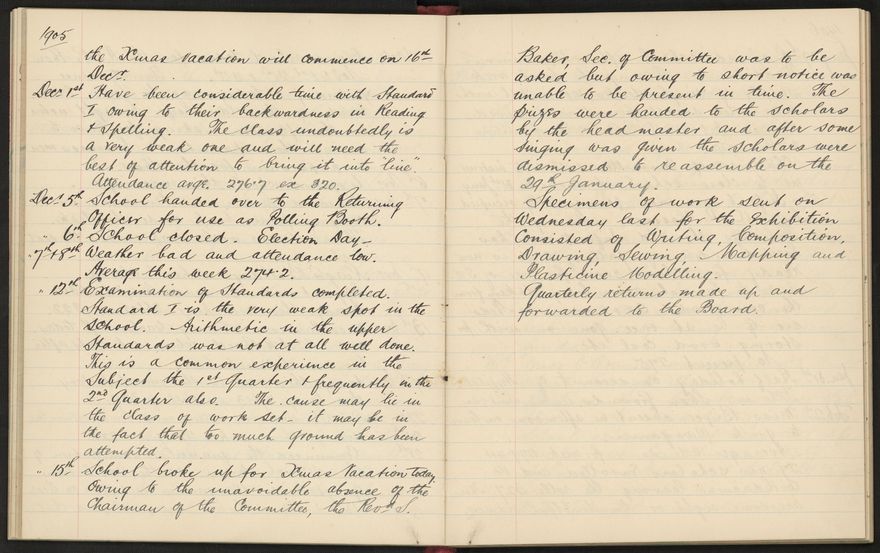 1905
the Xmas Vacation will commence on 16th
Decr.
Decr 1st Have been considerable time with Standard
I owing to their backwardness in Reading
& Spelling. The class undoubtedly is
a very weak one and will need the
best of attention to bring it into "line".
Attendance avge. 276.7 ex 320.
Decr 5th School handed over to the Returning
Officer for use as Polling Booth.
" 6th School closed. Election Day –
" 7th & 8th Weather bad and attendance low.
Average this week 274.2.
" 12th Examination of Standards completed.
Standard I is the very weak spot in the
School. Arithmetic in the upper
Standards was not at all well done.
This is a common experience in the
Subject the 1st Quarter & frequently in the
2nd Quarter also. The cause may lie in
the class of work set – it may be in
the fact that too much ground has been
attempted.
" 15th School broke up for Xmas Vacation today.
Owing to the unavoidable absence of the
Chairman of the Committee, the Revd S.
Baker, Sec. of Committee was to be
asked but owing to short notice was
unable to be present in time. The
prizes were handed to the scholars
by the head master and after some
singing was given the scholars were
dismissed to reassemble on the
29th January.
Specimens of work sent on
Wednesday last for the Exhibition
Consisted of Writing, Composition,
Drawing, Sewing, Mapping and
Plasticine Modelling.
Quarterly returns made up and
forwarded to the Board.